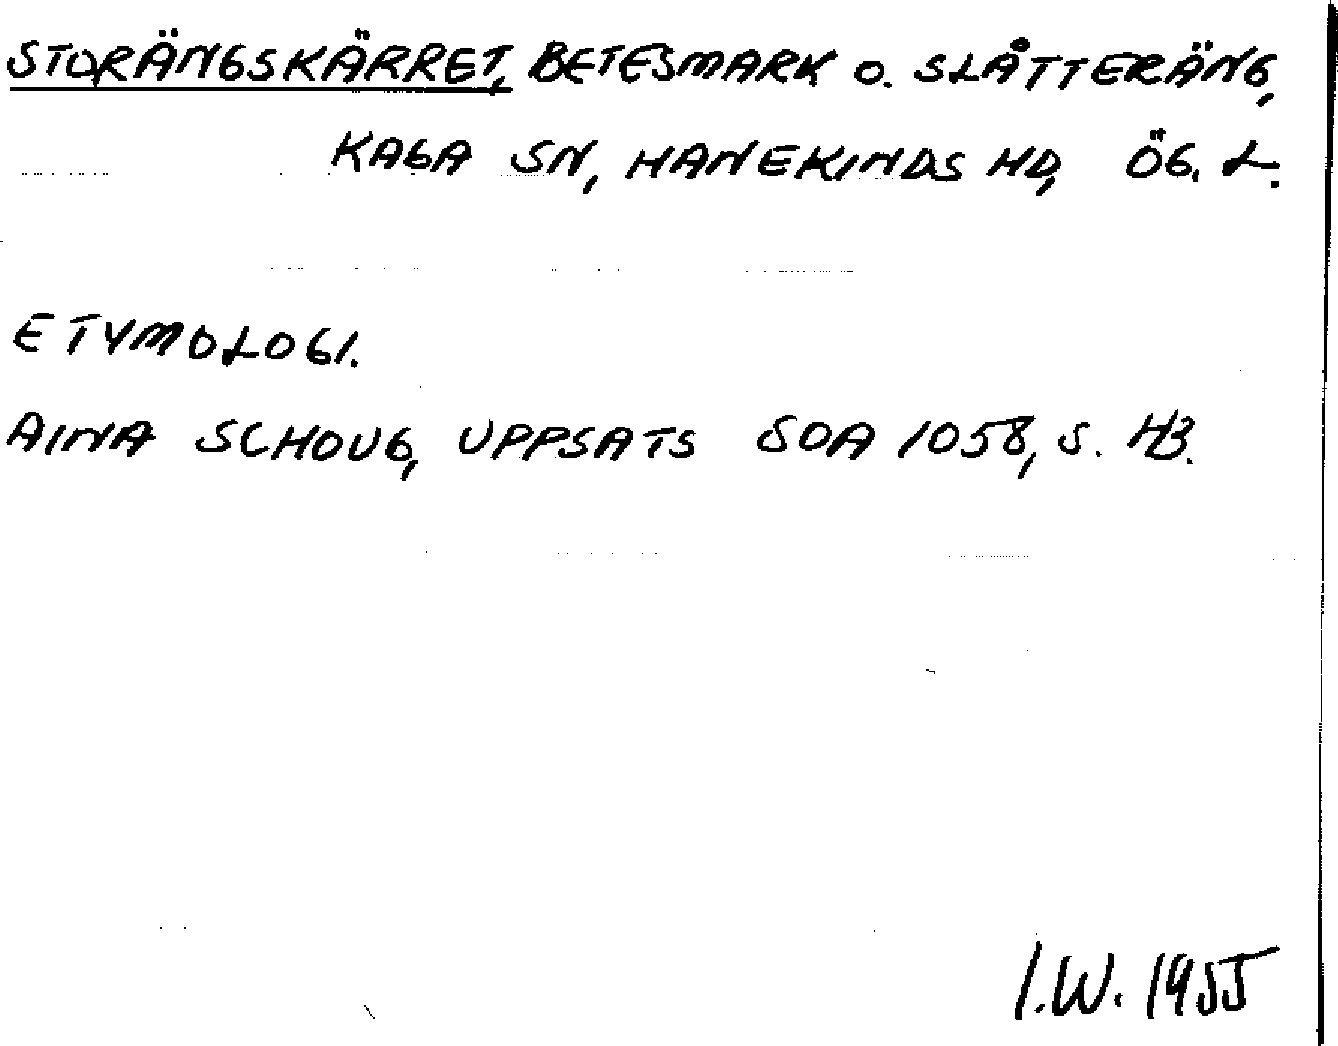 STORÄNGSKÄRRET, BETESMARK O. SLÅTTERÄNG,
KAGA SN, HANEKINDS HD, ÖG. L.
ETYMOLOGI.
AINA SCHOUG, UPPSATS SOA 1058, S. 43.
I.W. 1955